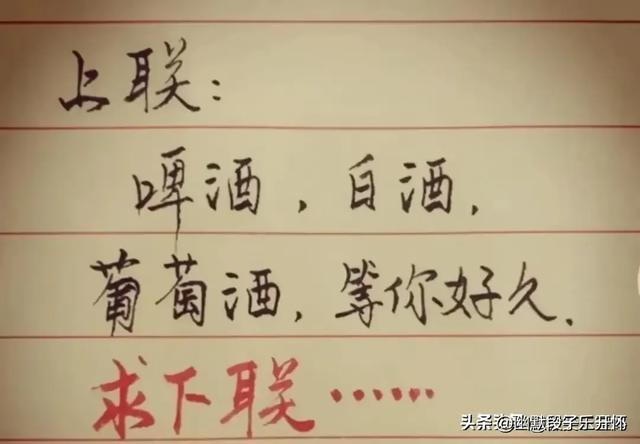 上联：
啤酒，白酒，
葡萄酒，等你好久.
求下联……
头条 @幽默段子王开怀